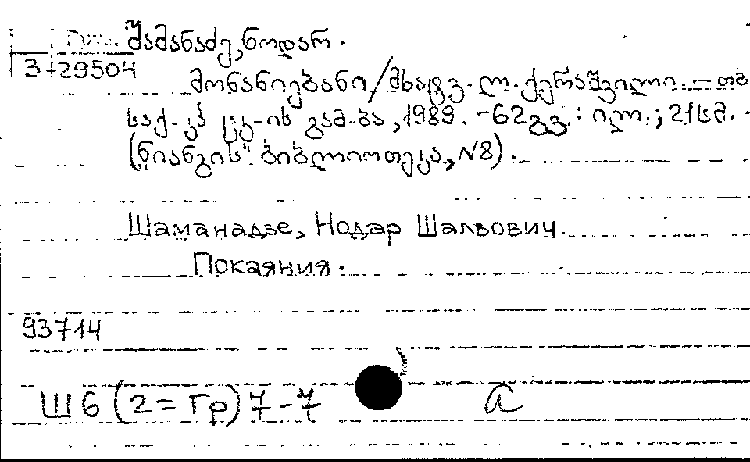 შამანაძე, ნოდარ.
3-29504
მონანიებანი / მხატვ. ლ. ქერაშვილი. — თბ.
საქ. კპ ცკ-ის გამ-ბა, 1989. - 62 გვ. : ილ. ; 21 სმ. -
(ნიანგის" ბიბლიოთეკა, N8).
Шаманадзе, Нодар Шальович.
Покаяния.
93714
Ш6 (2=Гр) 7-7 a